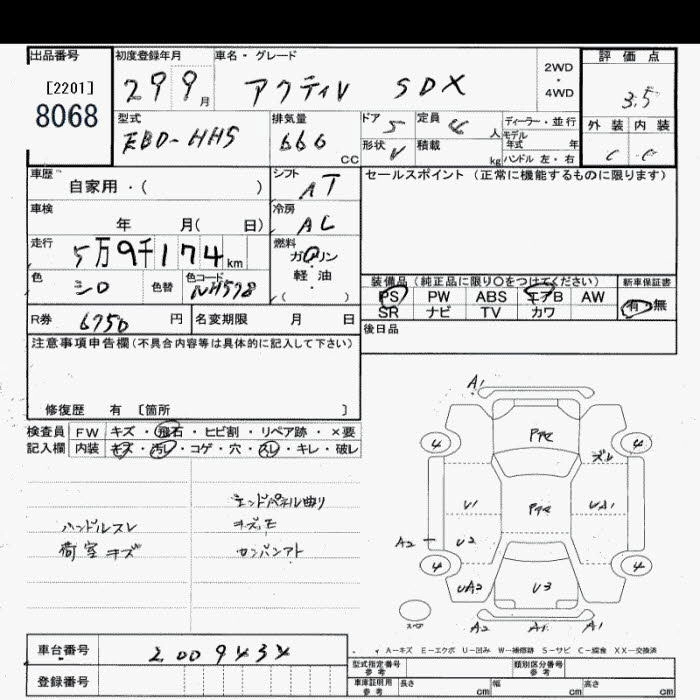 出品番号 初度登録年月 車名・グレード 2WD・4WD 評価点
[2201]
8068
29 9月 アクティV SDX 3.5
型式 排気量 ドア 定員 ディーラー・並行 外装 内装
EBD-HH5 660 CC 5 4人 モデル年式 年 C C
形状 V 積載 kg ハンドル 左・右
車歴 シフト セールスポイント (正常に機能するものに限ります)
自家用・( ) AT
車検 冷房
年 月( 日) AC
走行 燃料
5万9千174km ガソリン
軽・油
色 色替 色コード ( )
シロ NH578
装備品 (純正品に限り〇をつけてください) 新車保証書
PS PW ABS エアB AW 有・無
SR ナビ TV カワ
R券 6750円 名変期限 月 日
後日品
注意事項申告欄(不具合内容等は具体的に記入して下さい)
修復歴 有 [箇所 ]
検査員 FW キズ・飛石・ヒビ割・リペア跡・×要
記入欄 内装 キズ・汚レ・コゲ・穴・スレ・キレ・破レ
エンドパネル曲り
ハンドルスレ
荷室キズ カンバンアト
A1
4 4
ズレ
U1 UA1
A2 U2
4 4
UA2 U3
スペア A2 A1 A1
A-キズ E-エクボ U-凹み W-補修跡 S-サビ C-腐食 XX-交換済
車台番号 2009434
登録番号
型式指定番号 参考 類別区分番号 参考
車庫証明用 参考 長さ cm 幅 cm 高さ cm